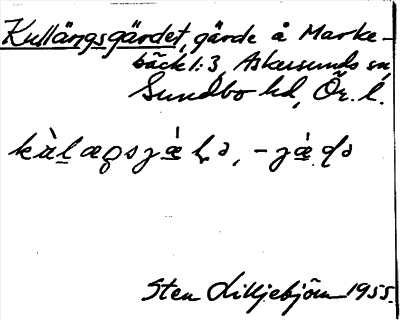 Kullängsgärdet, gärde å Marke-
bäck 1:3, Askersunds sn,
Sundbo hd, Ör. l.
Sten Lilljebjörn 1955.